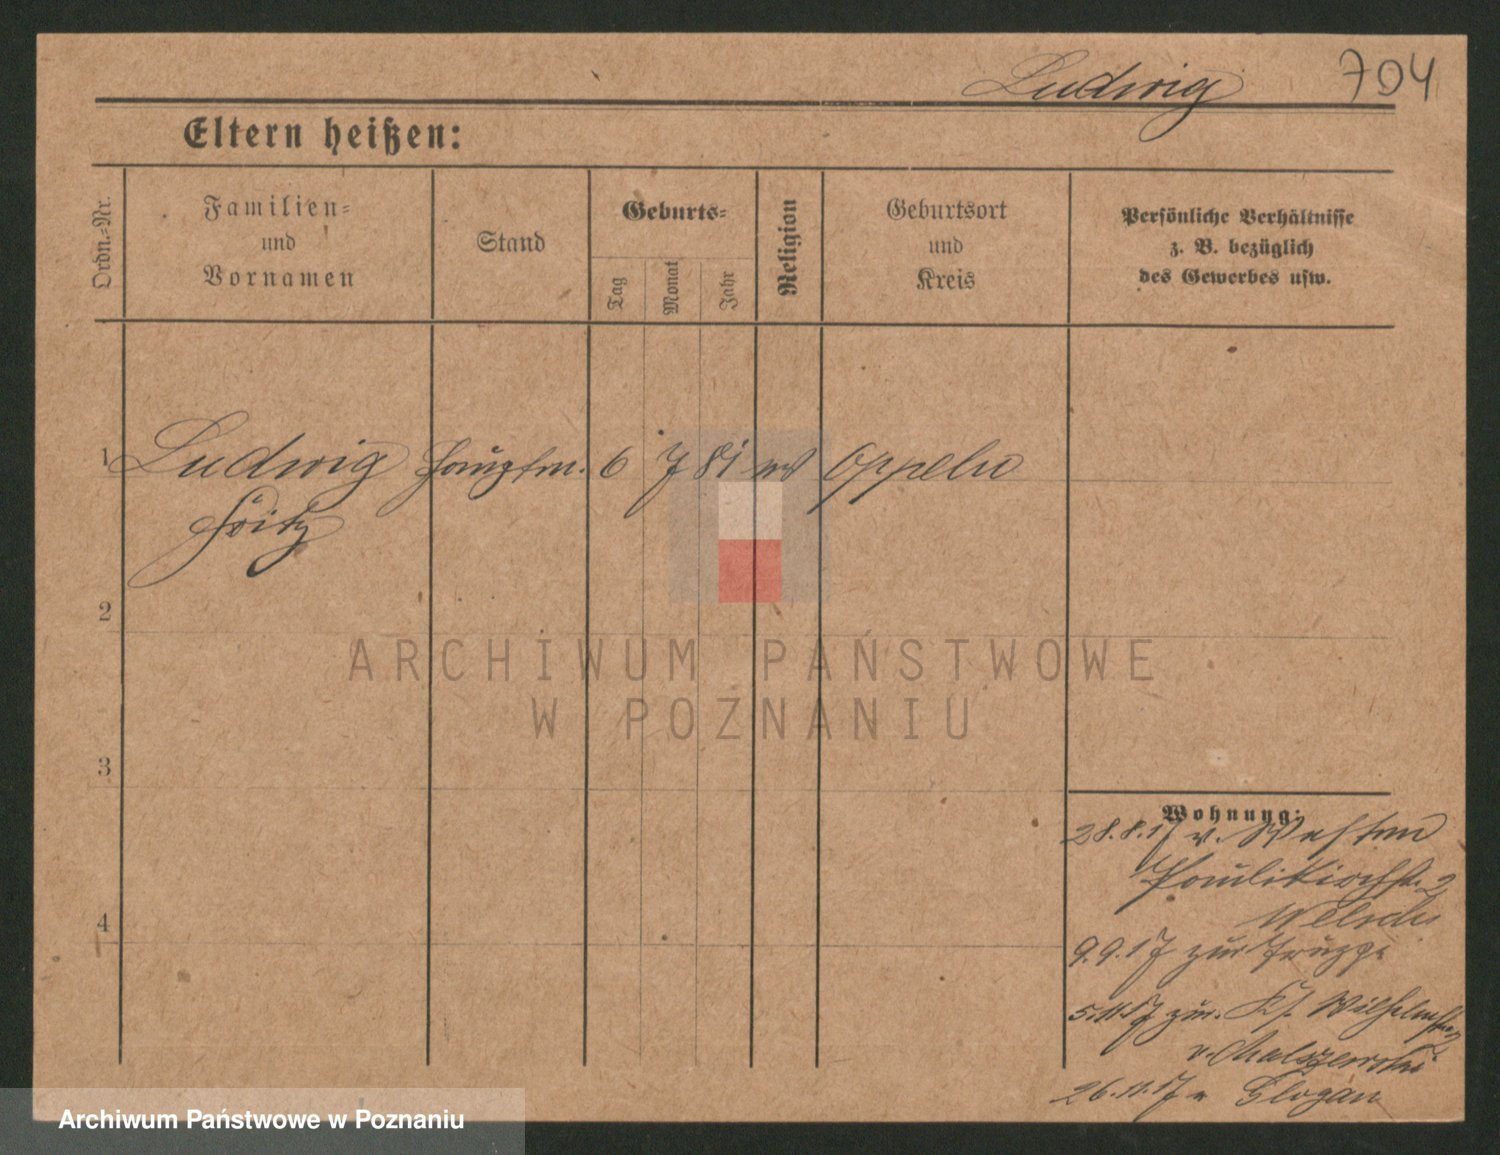 Ludwig 704
Eltern heißen:
Ordn.-Nr.
Familien-
und
Vornamen
Stand
Geburts-
Tag
Monat
Jahr
Religion
Geburtsort
und
Kreis
Persönliche Verhältnisse
z. B. bezüglich
des Gewerbes usw.
1 Ludwig Hauptm. 6 7 81 Oppeln
Fritz
2
3
4
Wohnung:
28.8.17 v. Westen
Paulikirchstr. 2
9.9.17 zur Truppe
5.11.17 zur. Wilhelmstr.
26.11.17 n Glogau
ARCHIWUM PAŃSTWOWE
W POZNANIU
Archiwum Państwowe w Poznaniu